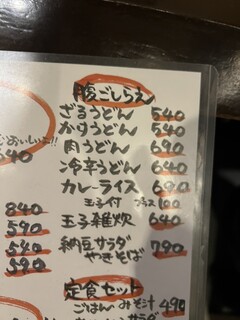 腹ごしらえ
ざるうどん 540
かけうどん 540
肉うどん 690
冷辛うどん 640
カレーライス 690
玉子付 プラス100
玉子雑炊 640
納豆サラダ
やきそば 790
定食セット
ごはん みそ汁 490
サラダ
でおいしい!!
840
590
540
590